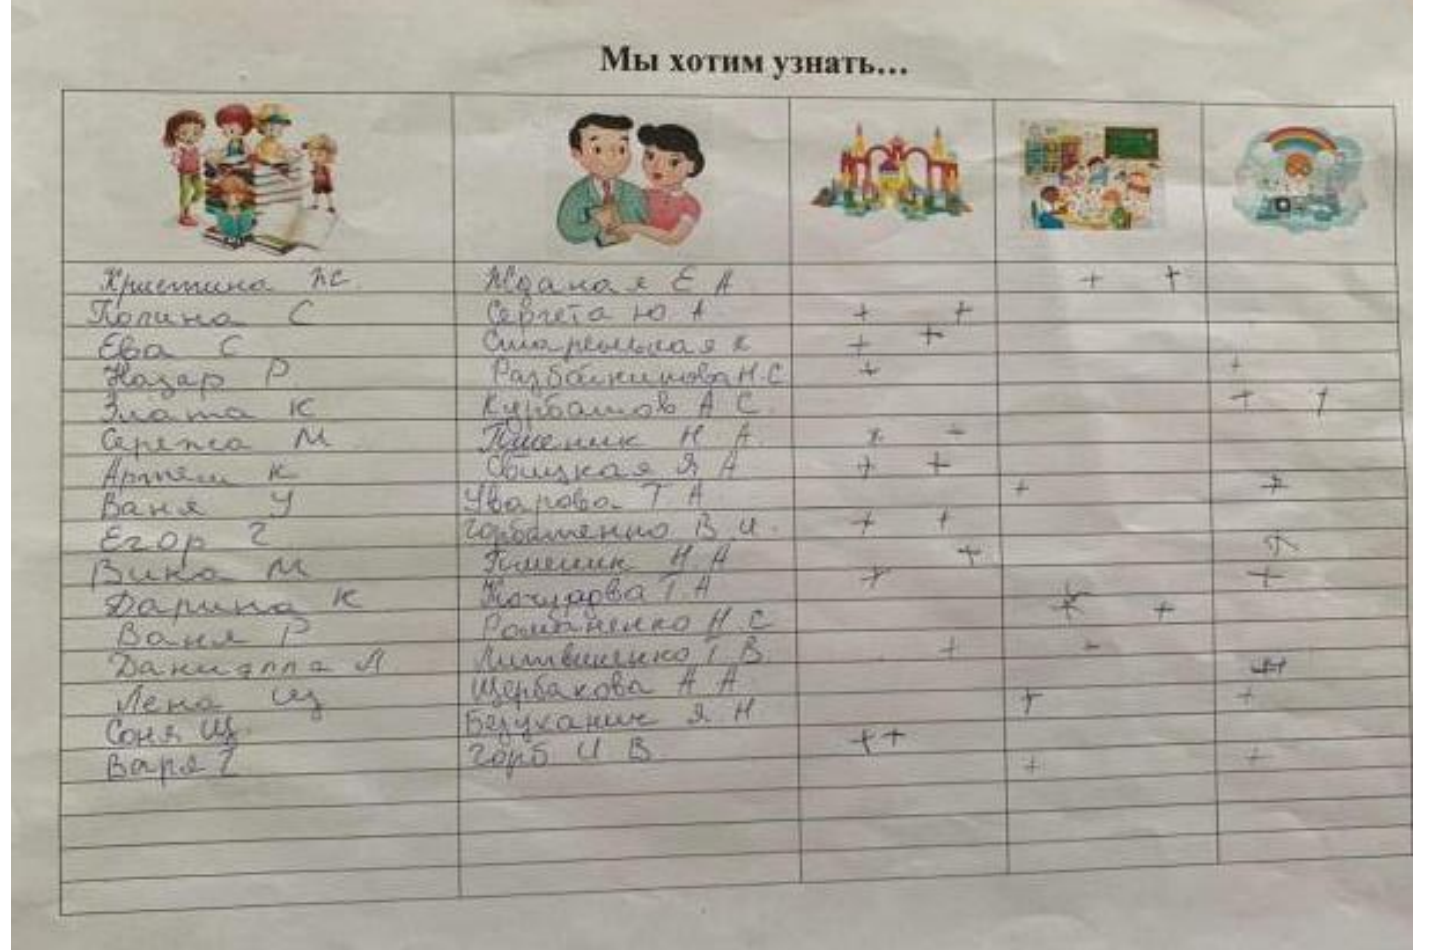 Мы хотим узнать...
Христина Пс. Жданая Е А + +
Полина С Сергета Ю А + +
Ева С К + +
Назар Р. Н.С + +
Злата К Курбатов А С +
Сережа М Пшеник Н А. -
Артем К Я А + +
Ваня У Уварова Т А +
Егор Г Горбатенко В И. + +
Вика М Пшеник Н А +
Дарина К Т А + +
Ваня Р Романенко Н С +
Даниэлла Л Литвиненко Т В + -
Лена Щ Щербакова А А
Соня Щ. Я Н + +
Варя Г Горб И В + + + +